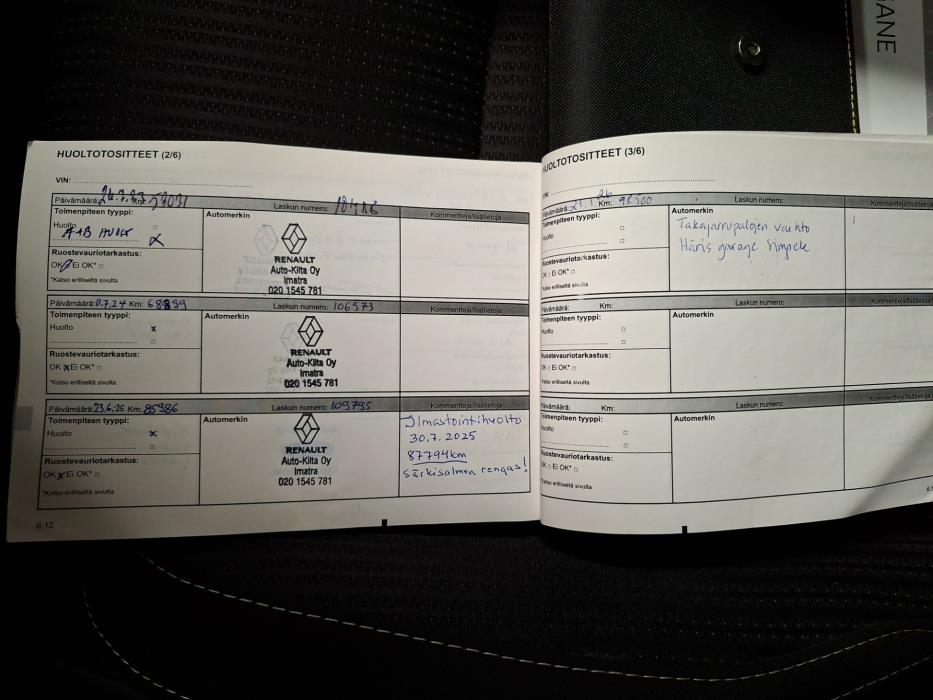 MEGANE
HUOLTOTOSITTEET (2/6)
VIN:
Päivämäärä: Km: 53031 Laskun numero: Kommentteja/lisätietoja
Toimenpiteen tyyppi: Automerkin
Huolto
A+B HUOLTO x
Ruostevauriotarkastus:
OK Ei OK*
*Katso erilliseltä sivulta
RENAULT
Auto-Kilta Oy
Imatra
020 1545 781
Päivämäärä: 11.7.24 Km: 68899 Laskun numero: 106973 Kommentteja/lisätietoja
Toimenpiteen tyyppi: Automerkin
Huolto x
Ruostevauriotarkastus:
OK x Ei OK*
*Katso erilliseltä sivulta
RENAULT
Auto-Kilta Oy
Imatra
020 1545 781
Päivämäärä: 23.6.25 Km: 85986 Laskun numero: 109795 Kommentteja/lisätietoja
Toimenpiteen tyyppi: Automerkin
Huolto x
Ruostevauriotarkastus:
OK x Ei OK*
*Katso erilliseltä sivulta
RENAULT
Auto-Kilta Oy
Imatra
020 1545 781
Ilmastointihuolto
30.7.2025
87794km
Särkisalmen rengas!
6.12
HUOLTOTOSITTEET (3/6)
VIN
Päivämäärä: 21.1.26 Km: 96500 Laskun numero: Kommentteja/lisätietoja
Toimenpiteen tyyppi: Automerkin
Huolto
Takajarrupalojen vaihto
Häris garage Simpele
Ruostevauriotarkastus:
OK Ei OK*
*Katso erilliseltä sivulta
Päivämäärä: Km: Laskun numero: Kommentteja/lisätietoja
Toimenpiteen tyyppi: Automerkin
Huolto
Ruostevauriotarkastus:
OK Ei OK*
*Katso erilliseltä sivulta
Päivämäärä: Km: Laskun numero: Kommentteja/lisätietoja
Toimenpiteen tyyppi: Automerkin
Huolto
Ruostevauriotarkastus:
OK Ei OK*
*Katso erilliseltä sivulta